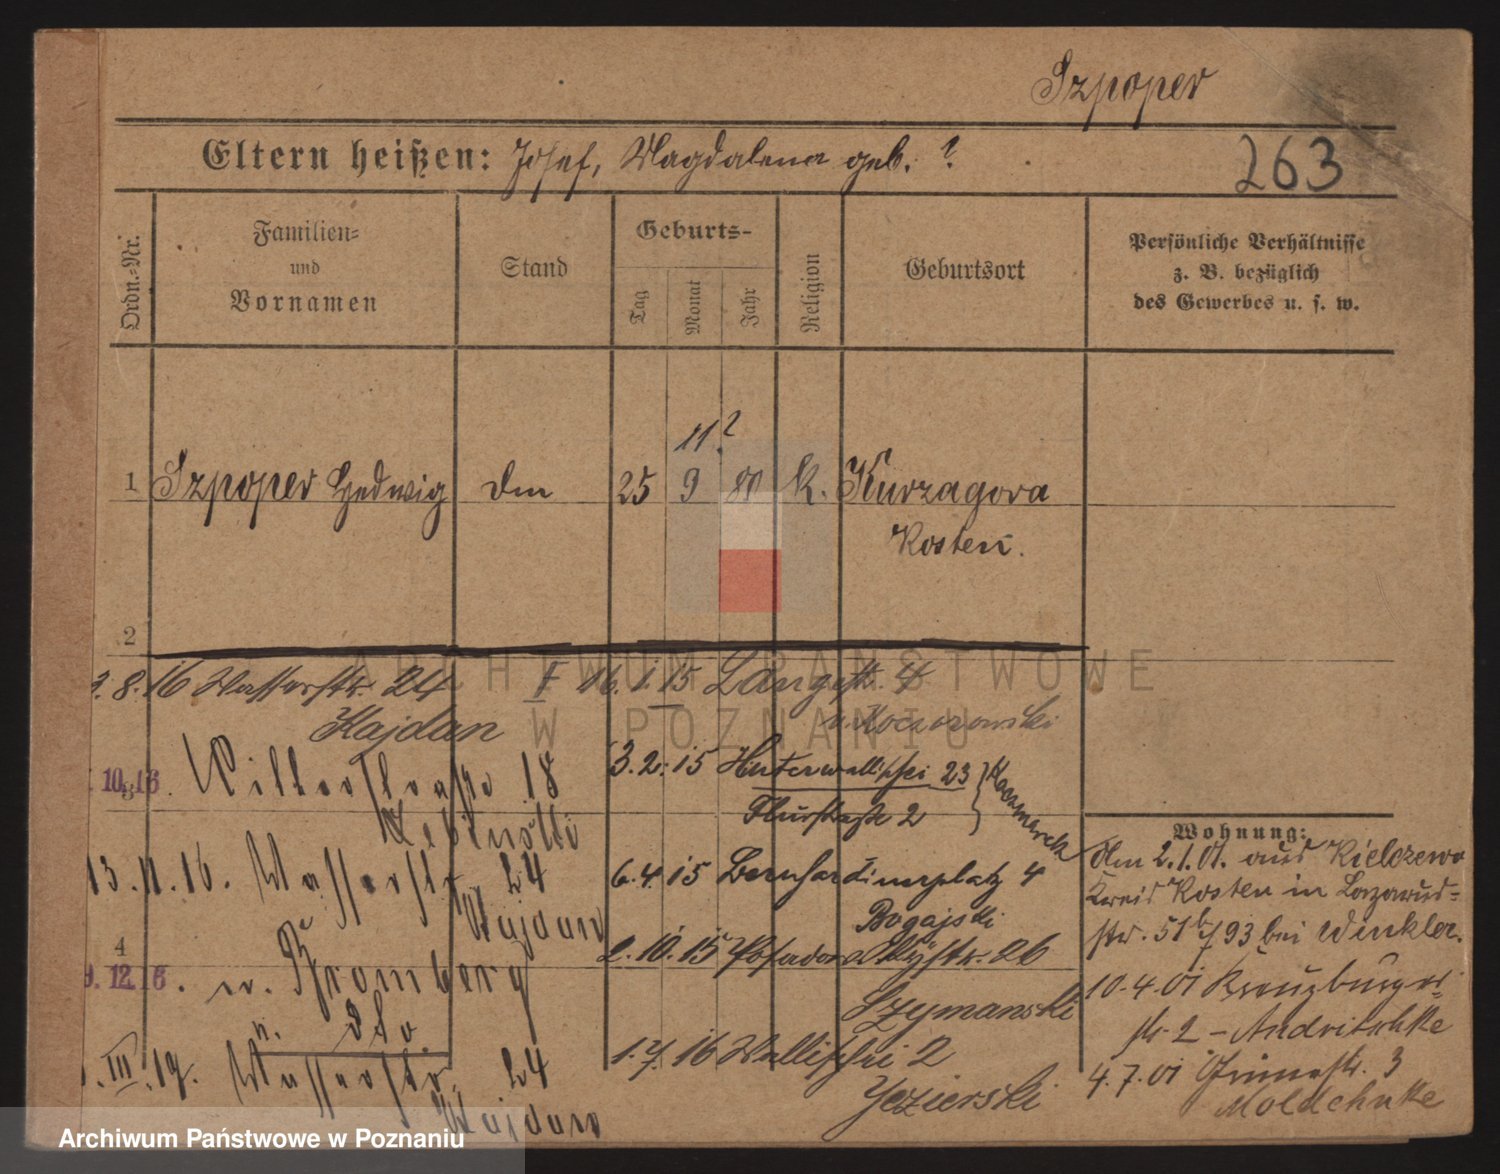 Szpoper
Eltern heißen: Josef, Magdalena geb. ?
263
Ordn.-Nr.
Familien- und Vornamen
Stand
Geburts-
Tag
Monat
Jahr
Religion
Geburtsort
Persönliche Verhältnisse
z. B. bezüglich
des Gewerbes u. s. w.
11?
1 Szpoper Hedwig 25 9 80 k. Kurzagora
Kosten.
2
ARCHIWUM PAŃSTWOWE
W POZNANIU
8. 16 Wasserstr. 24
Hajdan
10. 16. Ritterstraße 18
13. 11. 16. Wasserstr. 24
Hajdan
4
9. 12. 16. n. Bromberg
n. dto.
III. 19. Wasserstr. 24
Hajdan
16. 1. 15 Langestr. 4
v. Koczorowski
3. 2. 15 Hinterwallischei 23
Flurstraße 2
Kaczmarek
6. 4. 15 Bernhardinerplatz 4
Bogajski
2. 10. 15 Posadowskystr. 26
Szymanski
1. 7. 16 Wallischei 2
Jezierski
Wohnung:
Am 2. 1. 01. aus Kielczewo
Kreis Kosten in Lazarus-
str. 51b/93 bei Winkler.
10. 4. 01 Kreuzburger-
str. 2 - Andritschke
4. 7. 01 Prinzestr. 3
Moldehnke
Archiwum Państwowe w Poznaniu